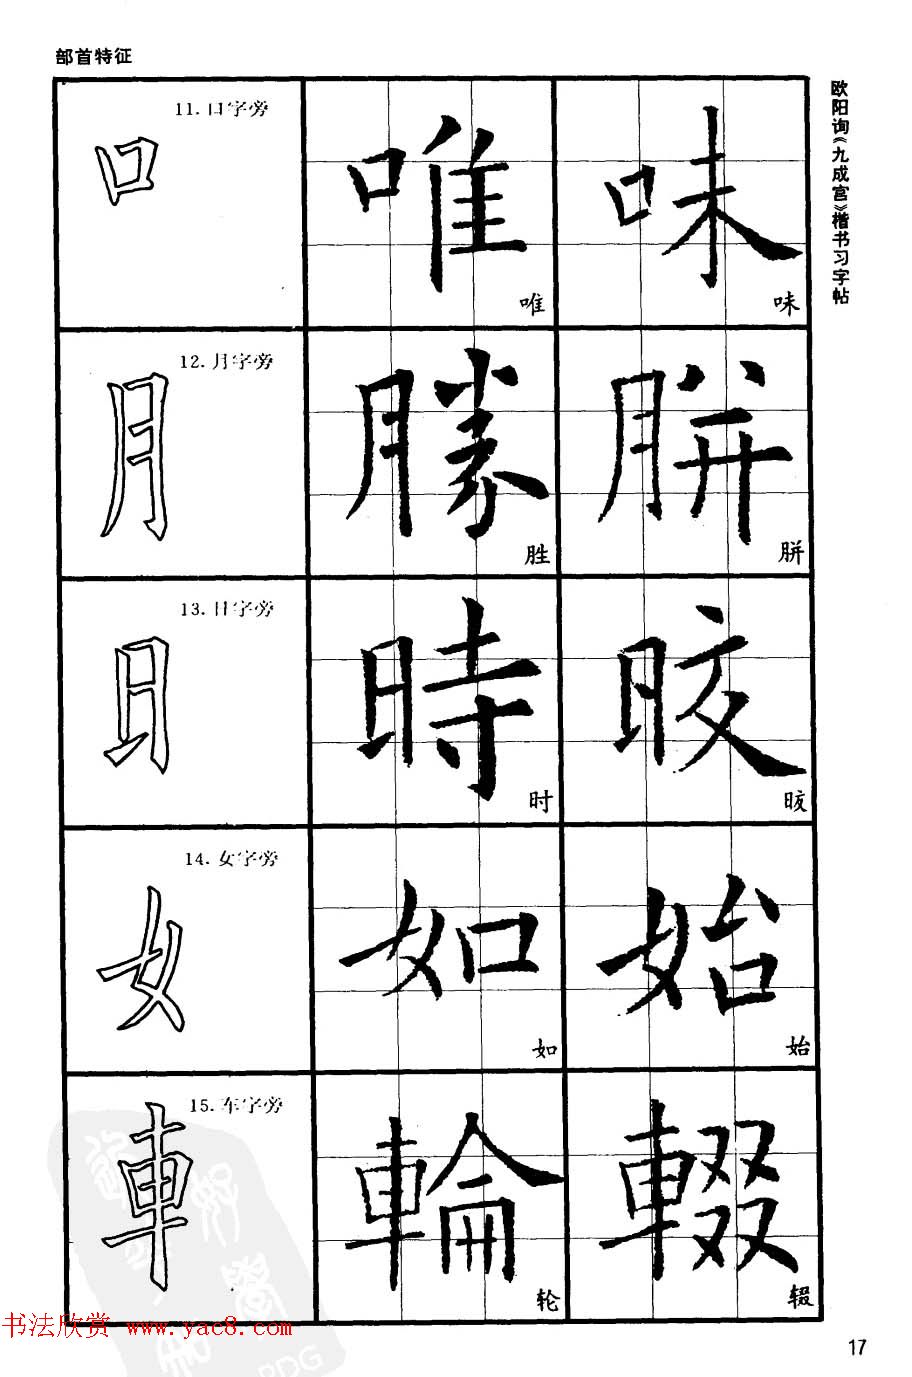 部首特征
欧阳询《九成宫》楷书习字帖
11.口字旁
口
唯
唯
味
味
12.月字旁
月
勝
胜
胼
胼
13.日字旁
日
時
时
晈
晈
14.女字旁
女
如
如
始
始
15.车字旁
車
輪
轮
輟
辍
书法欣赏 www.yac8.com
PDG
17